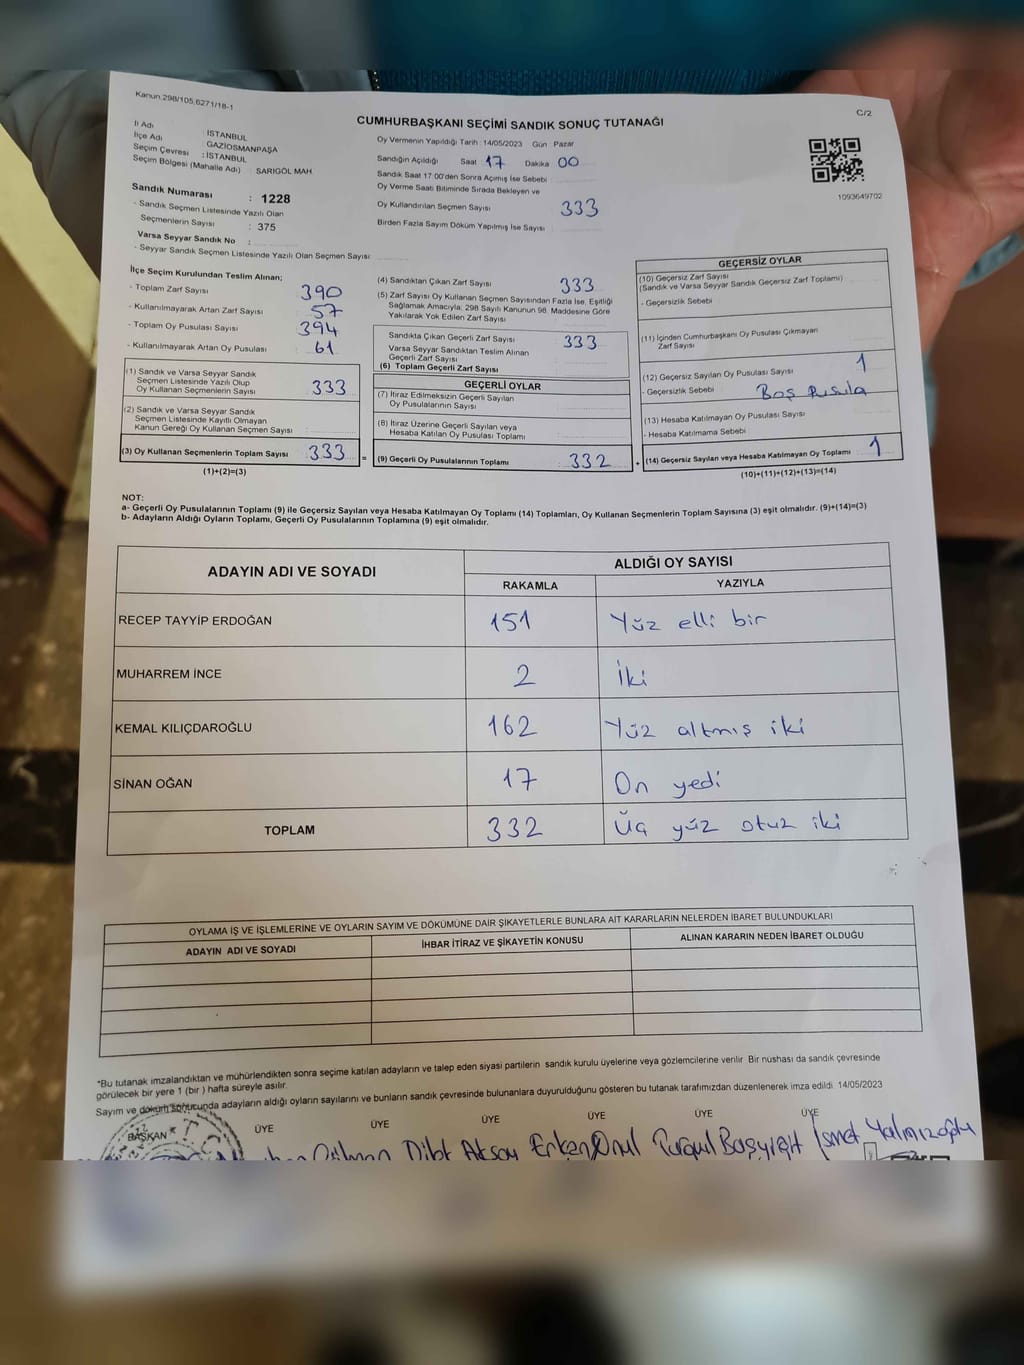 Kanun.298/105,6271/18-1
C/2
CUMHURBAŞKANI SEÇİMİ SANDIK SONUÇ TUTANAĞI
İl Adı : İSTANBUL
İlçe Adı GAZİOSMANPAŞA
Seçim Çevresi : İSTANBUL
Seçim Bölgesi (Mahalle Adı) SARIGÖL MAH
Sandık Numarası : 1228
- Sandık Seçmen Listesinde Yazılı Olan
Seçmenlerin Sayısı : 375
Varsa Seyyar Sandık No :
- Seyyar Sandık Seçmen Listesinde Yazılı Olan Seçmen Sayısı
Oy Vermenin Yapıldığı Tarih : 14/05/2023 Gün Pazar
Sandığın Açıldığı Saat 17 Dakika 00
Sandık Saat 17:00'den Sonra Açımış İse Sebebi
Oy Verme Saati Bitiminde Sırada Bekleyen ve
Oy Kullandırılan Seçmen Sayısı 333
Birden Fazla Sayım Döküm Yapılmış İse Sayısı
1093649702
İlçe Seçim Kurulundan Teslim Alınan;
- Toplam Zarf Sayısı 390
- Kullanılmayarak Artan Zarf Sayısı 57
- Toplam Oy Pusulası Sayısı 394
- Kullanılmayarak Artan Oy Pusulası 61
(1) Sandık ve Varsa Seyyar Sandık
Seçmen Listesinde Yazılı Olup
Oy Kullanan Seçmenlerin Sayısı 333
(2) Sandık ve Varsa Seyyar Sandık
Seçmen Listesinde Kayıtlı Olmayan
Kanun Gereği Oy Kullanan Seçmen Sayısı
(3) Oy Kullanan Seçmenlerin Toplam Sayısı 333 =
(1)+(2)=(3)
(4) Sandıktan Çıkan Zarf Sayısı 333
(5) Zarf Sayısı Oy Kullanan Seçmen Sayısından Fazla İse, Eşitliği
Sağlamak Amacıyla, 298 Sayılı Kanunun 98. Maddesine Göre
Yakılarak Yok Edilen Zarf Sayısı
Sandıkta Çıkan Geçerli Zarf Sayısı 333
Varsa Seyyar Sandıktan Teslim Alınan
Geçerli Zarf Sayısı
(6) Toplam Geçerli Zarf Sayısı
GEÇERLİ OYLAR
(7) İtiraz Edilmeksizin Geçerli Sayılan
Oy Pusulalarının Sayısı
(8) İtiraz Üzerine Geçerli Sayılan veya
Hesaba Katılan Oy Pusulası Toplamı
(9) Geçerli Oy Pusulalarının Toplamı 332 +
GEÇERSİZ OYLAR
(10) Geçersiz Zarf Sayısı
(Sandık ve Varsa Seyyar Sandık Geçersiz Zarf Toplamı)
- Geçersizlik Sebebi
(11) İçinden Cumhurbaşkanı Oy Pusulası Çıkmayan
Zarf Sayısı
(12) Geçersiz Sayılan Oy Pusulası Sayısı 1
- Geçersizlik Sebebi Boş Pusula
(13) Hesaba Katılmayan Oy Pusulası Sayısı
- Hesaba Katılmama Sebebi
(14) Geçersiz Sayılan veya Hesaba Katılmayan Oy Toplamı 1
(10)+(11)+(12)+(13)=(14)
NOT:
a- Geçerli Oy Pusulalarının Toplamı (9) ile Geçersiz Sayılan veya Hesaba Katılmayan Oy Toplamı (14) Toplamları, Oy Kullanan Seçmenlerin Toplam Sayısına (3) eşit olmalıdır. (9)+(14)=(3)
b- Adayların Aldığı Oyların Toplamı, Geçerli Oy Pusulalarının Toplamına (9) eşit olmalıdır.
ADAYIN ADI VE SOYADI ALDIĞI OY SAYISI
RAKAMLA YAZIYLA
RECEP TAYYİP ERDOĞAN 151 Yüz elli bir
MUHARREM İNCE 2 İki
KEMAL KILIÇDAROĞLU 162 Yüz altmış iki
SİNAN OĞAN 17 On yedi
TOPLAM 332 Üç yüz otuz iki
OYLAMA İŞ VE İŞLEMLERİNE VE OYLARIN SAYIM VE DÖKÜMÜNE DAİR ŞİKAYETLERLE BUNLARA AİT KARARLARIN NELERDEN İBARET BULUNDUKLARI
ADAYIN ADI VE SOYADI İHBAR İTİRAZ VE ŞİKAYETİN KONUSU ALINAN KARARIN NEDEN İBARET OLDUĞU
*Bu tutanak imzalandıktan ve mühürlendikten sonra seçime katılan adayların ve talep eden siyasi partilerin sandık kurulu üyelerine veya gözlemcilerine verilir Bir nüshası da sandık çevresinde
görülecek bir yere 1 (bir ) hafta süreyle asılır.
Sayım ve döküm sonucunda adayların aldığı oyların sayılarını ve bunların sandık çevresinde bulunanlara duyurulduğunu gösteren bu tutanak tarafımızdan düzenlenerek imza edildi. 14/05/2023
BAŞKAN ÜYE ÜYE ÜYE ÜYE ÜYE ÜYE
Aksoy Erkan Onul Turgut Başyiğit İsmet Yalnızoğlu